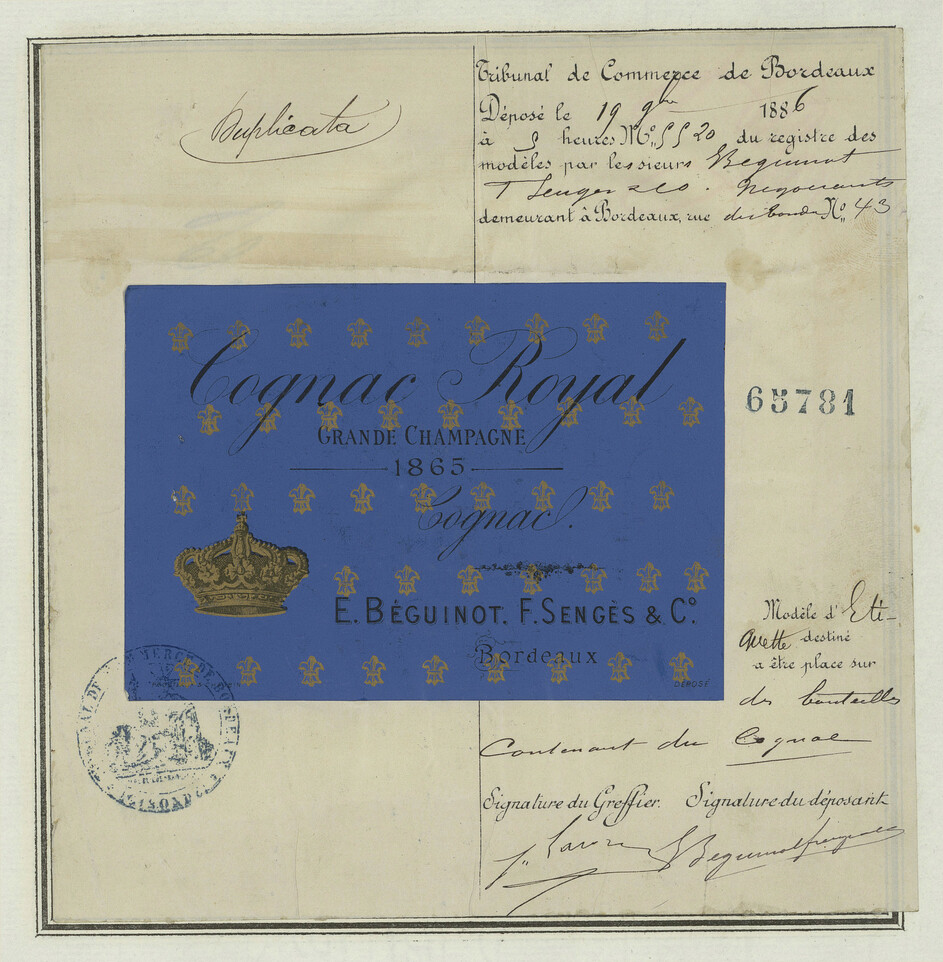 Duplicata
Tribunal de Commerce de Bordeaux
Déposé le 19 9bre 1886
à 3 heures No. 5520 du registre des
modèles par les sieurs Beguinot
négociants
demeurant à Bordeaux, rue No. 43
Cognac Royal
GRANDE CHAMPAGNE
1865
Cognac.
E. BÉGUINOT. F. SENGÈS & Co.
Bordeaux
DÉPOSÉ
65781
Modèle d'Eti-
quette destiné
a être place sur
des bouteilles
Contenant du Cognac
Signature du Greffier. Signature du déposant